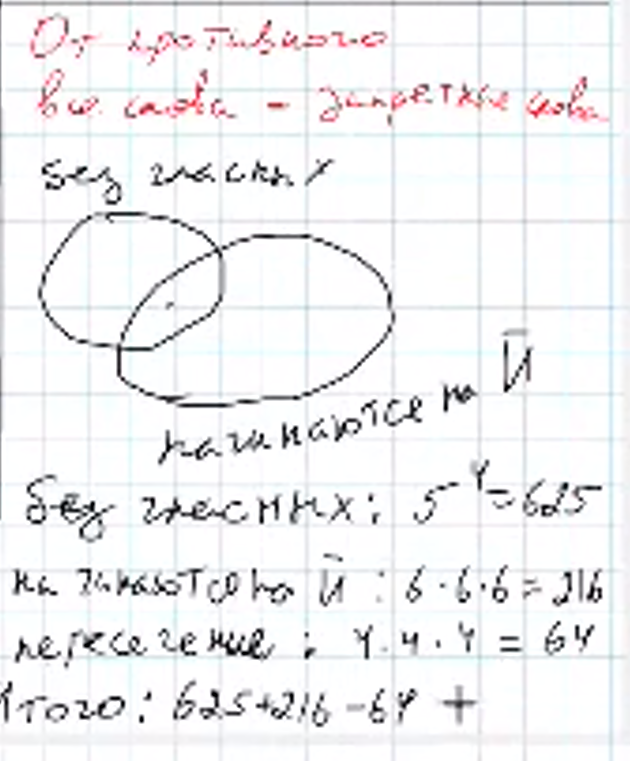 От противного
все слова - запретные слова
без гласных
начинаются на Й
без гласных: 5^4=625
начинаются на Й: 6·6·6=216
пересечение: 4·4·4=64
Итого: 625+216-64 +